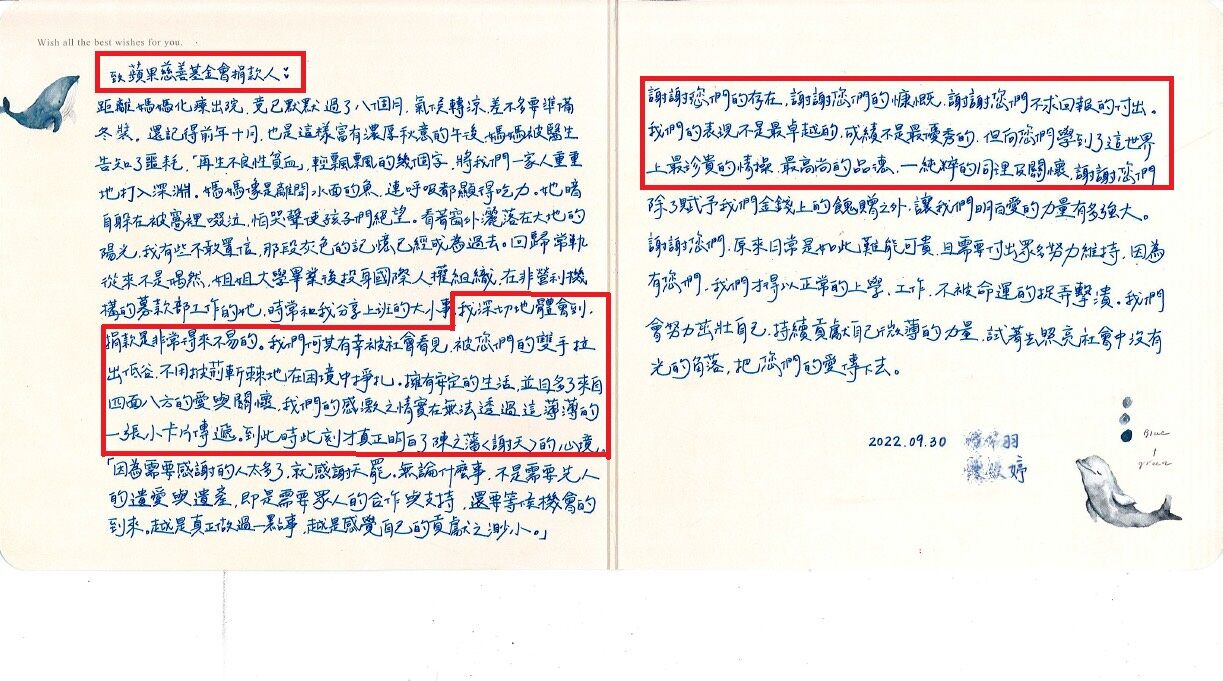 Wish all the best wishes for you.
致蘋果慈善基金會捐款人：
距離媽媽化療出院，竟已默默過了八個月，氣候轉涼，差不多要準備
冬裝。還記得前年十月，也是這樣富有濃厚秋意的午後，媽媽被醫生
告知了噩耗，「再生不良性貧血」輕飄飄的幾個字，將我們一家人重重
地打入深淵。媽媽像是離開水面的魚，連呼吸都顯得吃力。她暗
自躲在被窩裡啜泣，怕哭聲使孩子們絕望。看著窗外灑落在大地的
陽光，我有些不敢置信，那段灰色的記憶已經成為過去。回歸常軌
從來不是偶然，姐姐大學畢業後投身國際人權組織，在非營利機
構的募款部工作的她，時常和我分享上班的大小事，我深切地體會到，
捐款是非常得來不易的。我們何其有幸被社會看見，被您們的雙手拉
出低谷，不用披荊斬棘地在困境中掙扎。擁有安定的生活，並且多了來自
四面八方的愛與關懷，我們的感激之情實在無法透過這薄薄的
一張小卡片傳遞。到此時此刻才真正明白了陳之藩〈謝天〉的心境，
「因為需要感謝的人太多了，就感謝天罷。無論什麼事，不是需要先人
的遺愛與遺產，即是需要眾人的合作與支持，還要等候機會的
到來。越是真正做過一點事，越是感覺自己的貢獻之渺小。」
謝謝您們的存在，謝謝您們的慷慨，謝謝您們不求回報的付出。
我們的表現不是最卓越的，成績不是最優秀的，但向您們學到了這世界
上最珍貴的情操、最高尚的品德，一純粹的同理及關懷，謝謝您們
除了賦予我們金錢上的餽贈之外，讓我們明白愛的力量有多強大。
謝謝您們，原來日常是如此難能可貴，且需要付出眾多努力維持，因為
有您們，我們才得以正常的上學、工作，不被命運的捉弄擊潰。我們
會努力茁壯自己，持續貢獻自己微薄的力量，試著去照亮社會中沒有
光的角落，把您們的愛傳下去。
2022.09.30
Blue